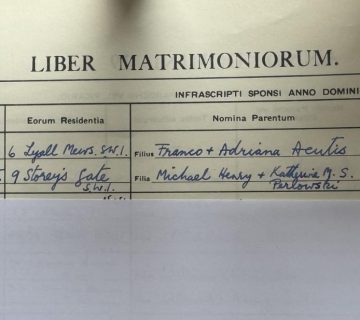 LIBER MATRIMONIORUM.
INFRASCRIPTI SPONSI ANNO DOMINI
Eorum Residentia Nomina Parentum
6 Lyall Mews. S.W.1. Filius Franco + Adriana Acutis
9 Storey's Gate Filia Michael Henry + Katherine M. S.
S.W.1. Perlowski